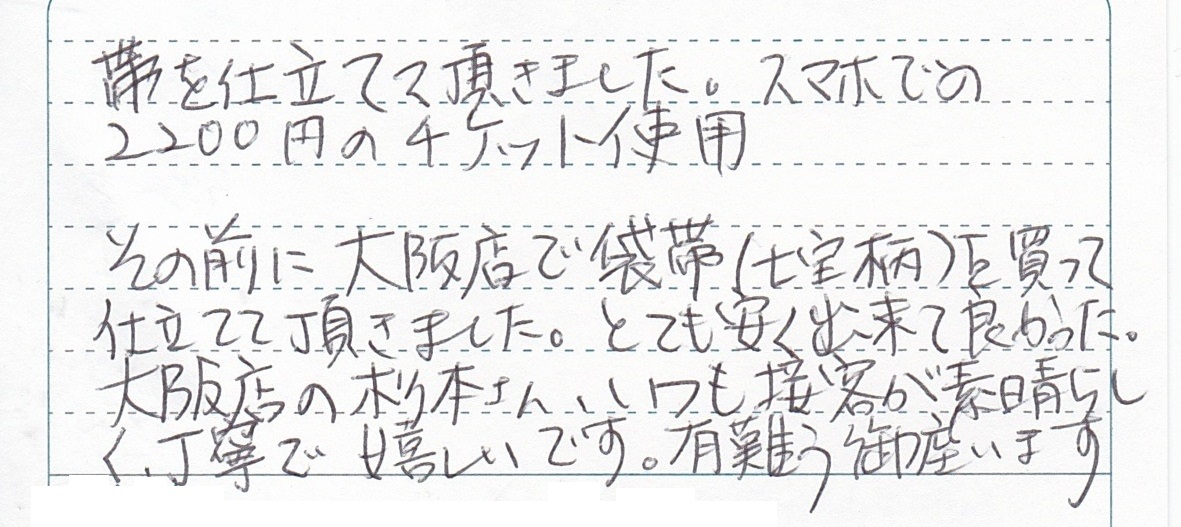 帯を仕立てて頂きました。スマホでの
2200円のチケット使用
その前に大阪店で袋帯(七宝柄)を買って
仕立てて頂きました。とても安く出来て良かった。
大阪店の杉本さん、いつも接客が素晴らし
く、丁寧で嬉しいです。有難う御座います